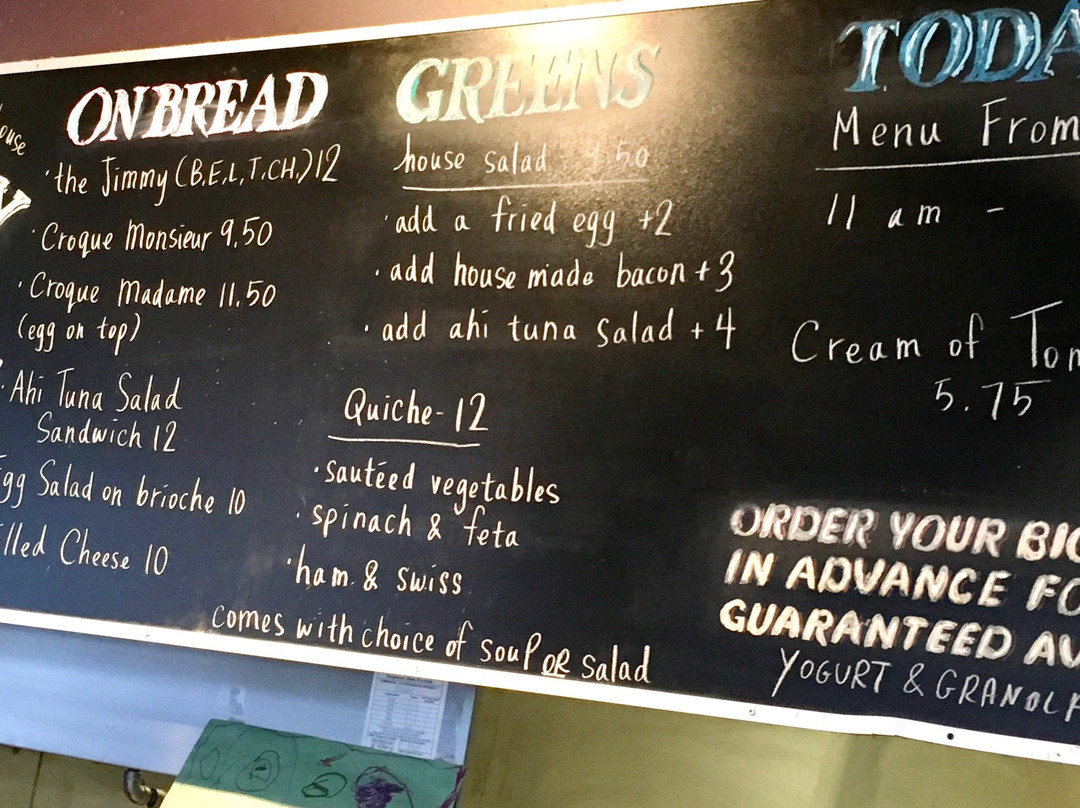 ON BREAD
· the Jimmy (B,E,L,T,CH,) 12
· Croque Monsieur 9.50
· Croque Madame 11.50
(egg on top)
· Ahi Tuna Salad
Sandwich 12
Egg Salad on brioche 10
illed Cheese 10
GREENS
house salad 9.50
· add a fried egg +2
· add house made bacon +3
· add ahi tuna salad +4
Quiche - 12
· sautéed vegetables
· spinach & feta
· ham & swiss
comes with choice of soup OR salad
TODA
Menu From
11 am -
Cream of Tom
5.75
ORDER YOUR BIG
IN ADVANCE FO
GUARANTEED AV
YOGURT & GRANOLA
ouse